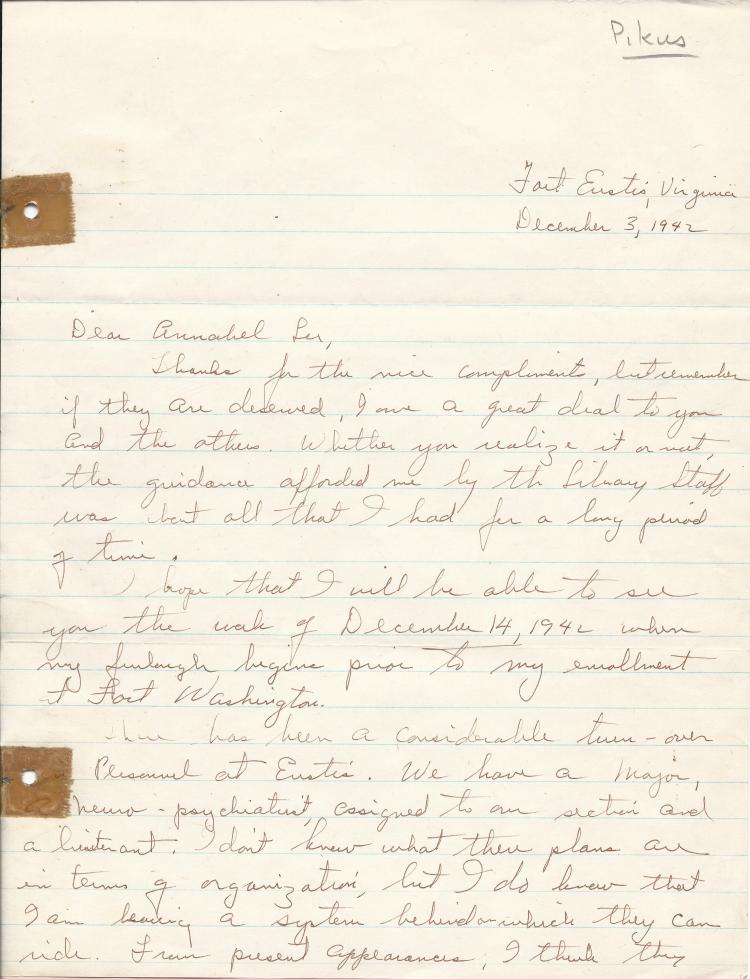 Pikus
Fort Eustis, Virginia
December 3, 1942
Dear Annabel Lee,
Thanks for the nice compliments, but remember
if they are deserved, I owe a great deal to you
and the others. Whether you realize it or not,
the guidance afforded me by the Library Staff
was about all that I had for a long period
of time.
I hope that I will be able to see
you the week of December 14, 1942 when
my furlough begins prior to my enrollment
at Fort Washington.
There has been a considerable turn-over
Personnel at Eustis. We have a Major,
a neuro-psychiatrist, assigned to our section and
a lieutenant. I don't know what their plans are
in terms of organization, but I do know that
I am leaving a system behind on which they can
ride. From present appearances, I think they